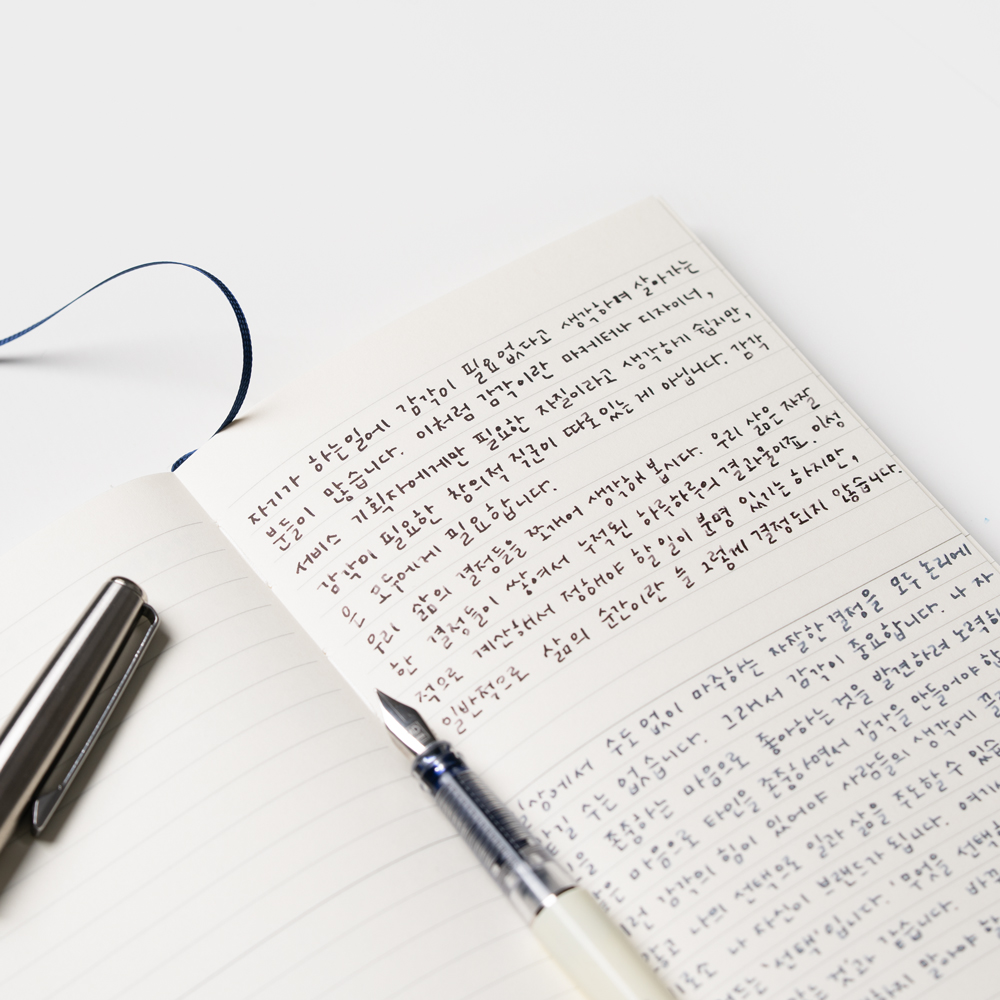 자기가 하는일에 감각이 필요없다고 생각하며 살아가는
분들이 많습니다. 이처럼 감각이란 마케터나 디자이너,
서비스 기획자에게만 필요한 자질이라고 생각하기 쉽지만,
감각이 필요한 창의적 직군이 따로 있는 게 아닙니다. 감각
은 모두에게 필요합니다.
우리 삶의 결정들을 쪼개어 생각해 봅시다. 우리 삶은 자잘
한 결정들이 쌓여서 누적된 하루하루의 결과물이죠. 이성
적으로 계산해서 정해야 할 일이 분명 있기는 하지만,
일반적으로 삶의 순간이란 늘 그렇게 결정되지 않습니다.
수도 없이 마주하는 자잘한 결정을 모두 논리에
수는 없습니다. 그래서 감각이 중요합니다. 나 자
존중하는 마음으로 좋아하는 것을 발견하려 노력하
마음으로 타인을 존중하면서 감각을 만들어야 한
감각의 힘이 있어야 사람들의 생각에 끌
나의 선택으로 일과 삶을 주도할 수 있습
나 자신이 브랜드가 됩니다. 여기
'선택'입니다. '무엇을 선택
것'과 같습니다. 바꿔
말아야 할